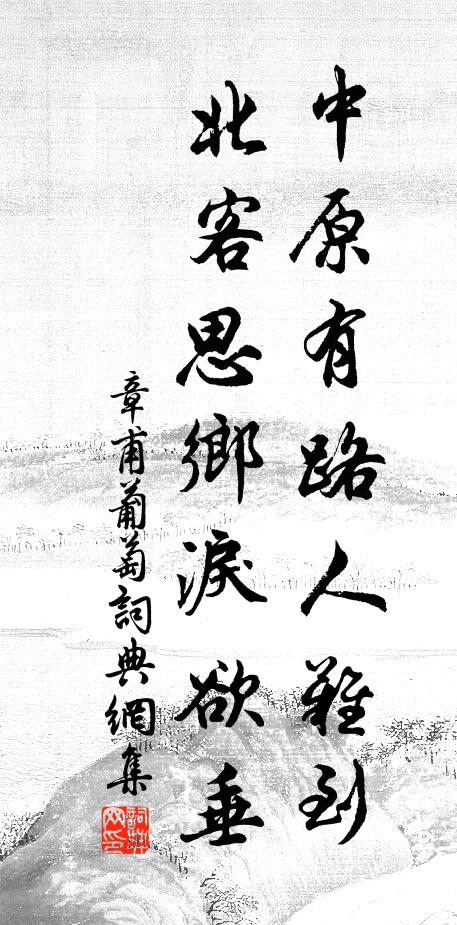 中原有路人難到
北客思鄉淚欲垂
章甫葡萄詞典網集